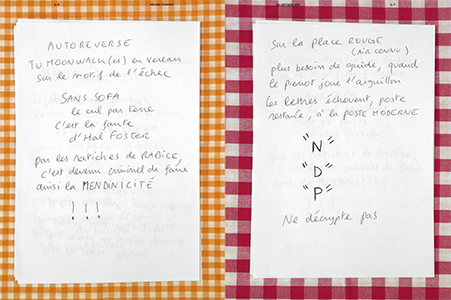 AUTOREVERSE
TU MOONWALK(es) en verlan
sur le motif de l'échec
SANS SOFA
le cul par terre
c'est la faute
d'Hal FOSTER
par les natiches de RADICE,
c'est devenu criminel de faire
ainsi la MENDINICITÉ
! ! !
Sur la place ROUGE
(AIR CONNU)
plus besoin de guide, quand
le pierrot joue l'aiguillon
les lettres échouent, poste
restante, à la POSTE MODERNE
"N"
"D"
"P"
Ne décrypte pas